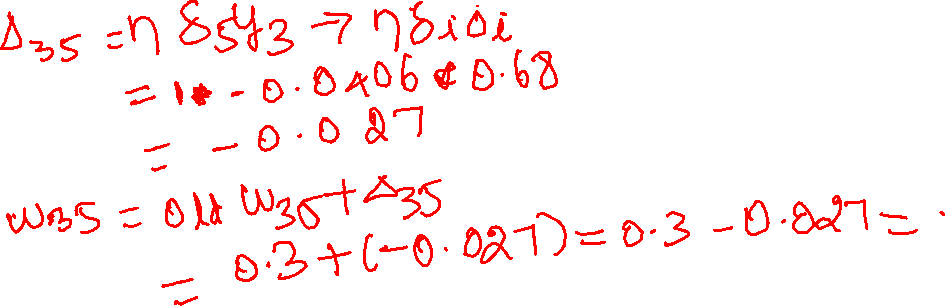 Δ35 = η δ5y3 → η δi oi
= 1 * -0.0406 * 0.68
= -0.027
w35 = old w35 + Δ35
= 0.3 + (-0.027) = 0.3 - 0.027 = .